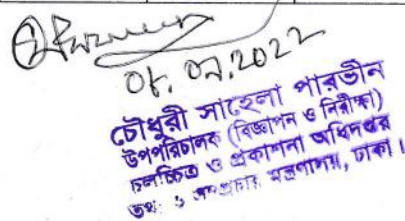 চৌধুরী সাহেলা পারভীন
উপপরিচালক (বিজ্ঞাপন ও নিরীক্ষা)
চলচ্চিত্র ও প্রকাশনা অধিদপ্তর
তথ্য ও সম্প্রচার মন্ত্রণালয়, ঢাকা।